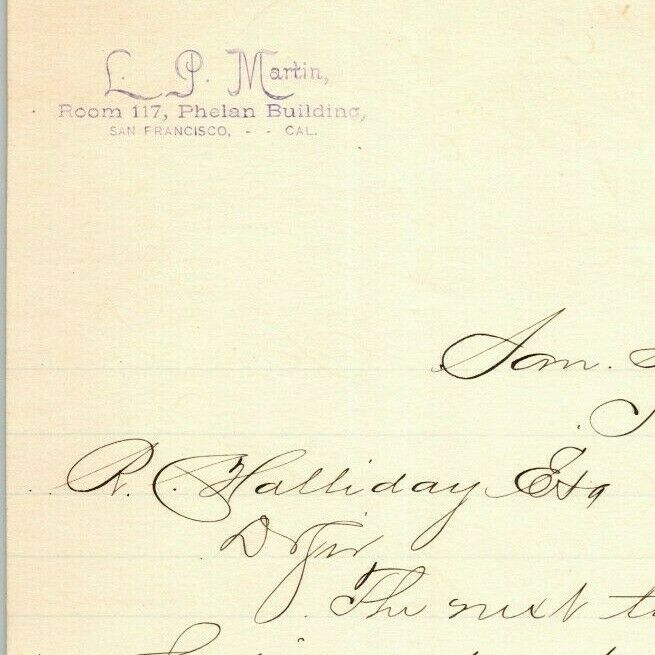 L. P. Martin,
Room 117, Phelan Building,
SAN FRANCISCO, - - CAL.
San.
R. Halliday Esq
D Sir
The next